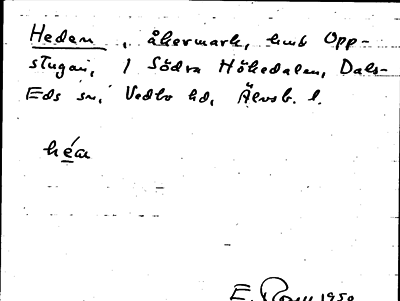 Hedan, åkermark, hmt Opp-
stugan, 1 Södra Hökedalen, Dals-
Eds sn, Vedbo hd, Älvsb. l.
héa
E. 1950